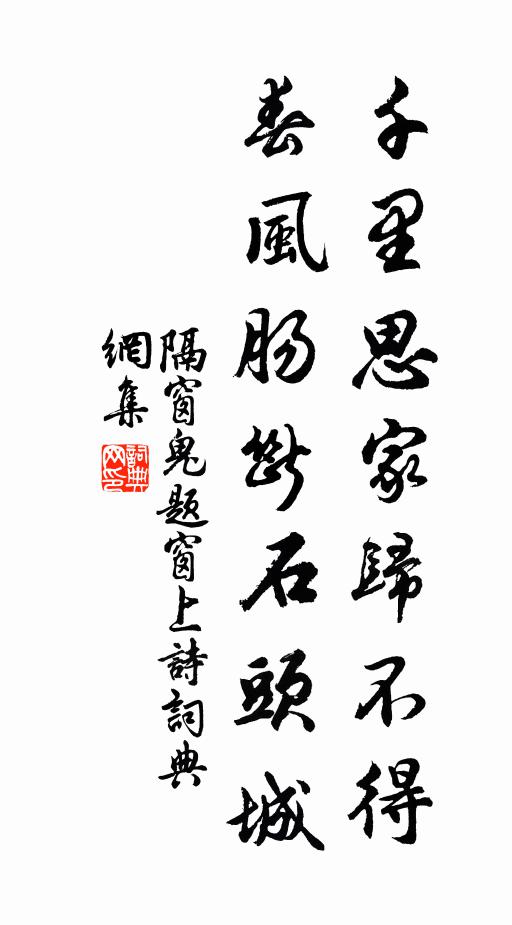 千里思家歸不得
春風腸斷石頭城
隔窗鬼題窗上詩詞典
網集
詞典
网印